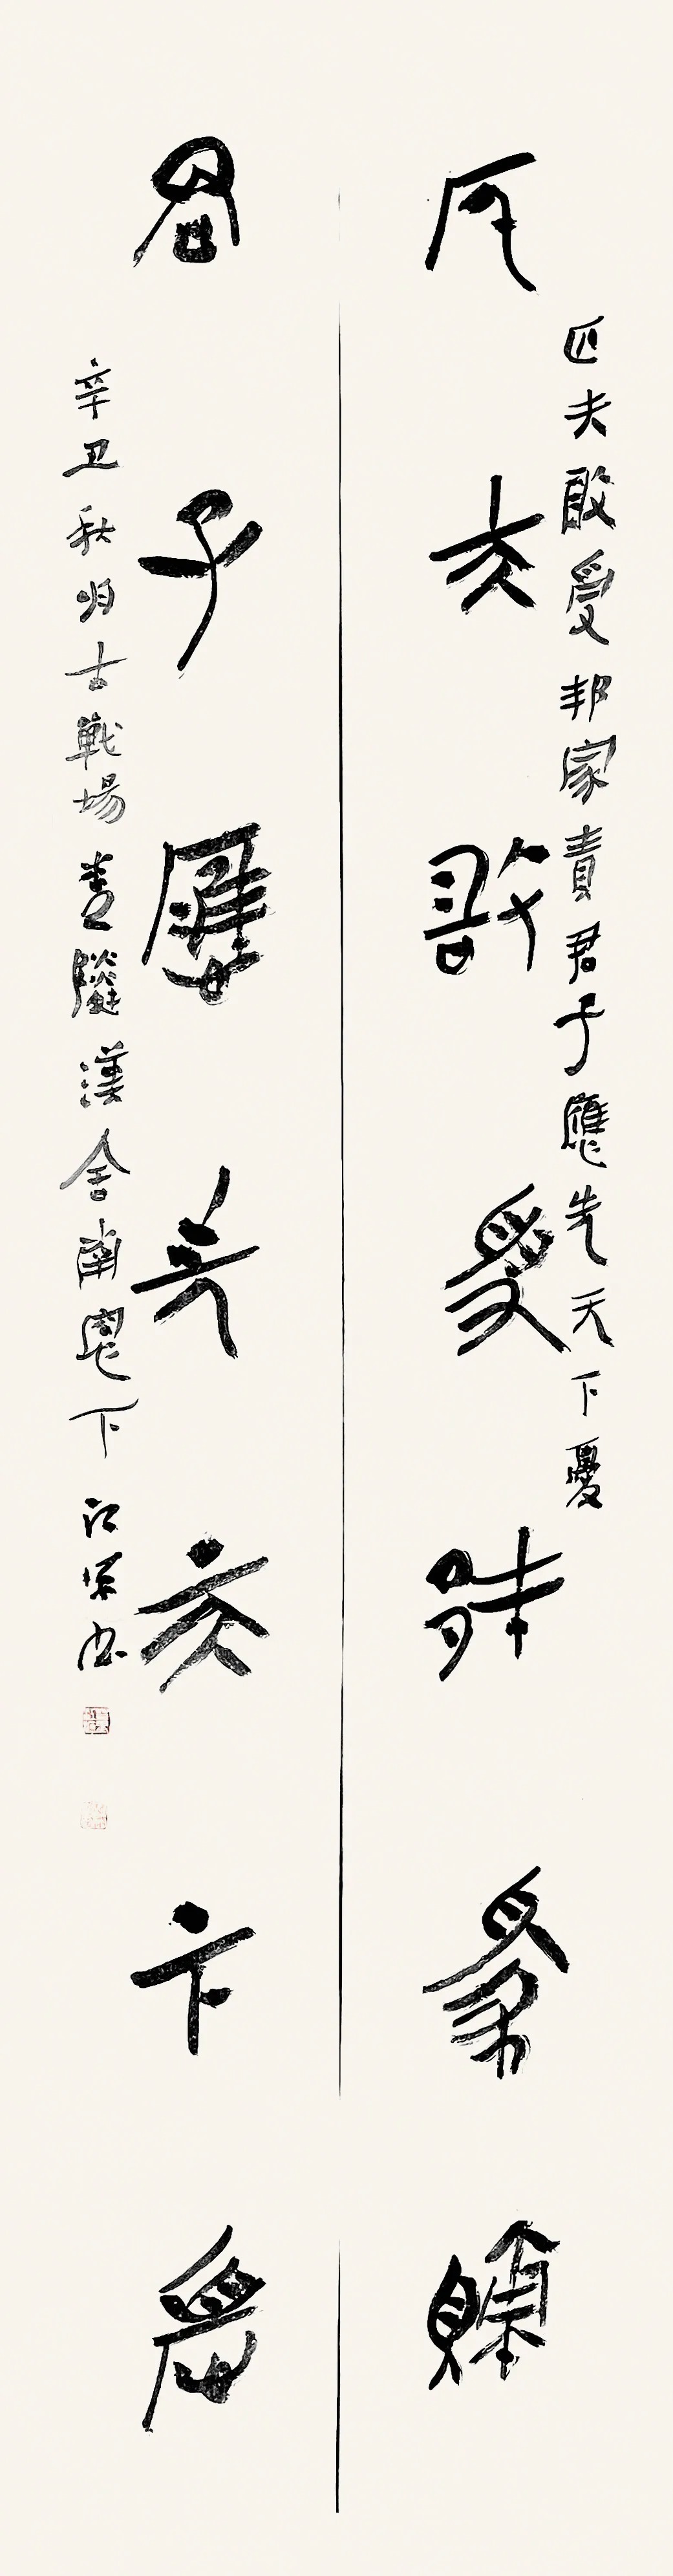 匹夫敢愛邦家責
匹夫敢愛邦家責君子應先天下憂
君子應先天下憂
辛丑秋明古戰場漢舍南窗下江